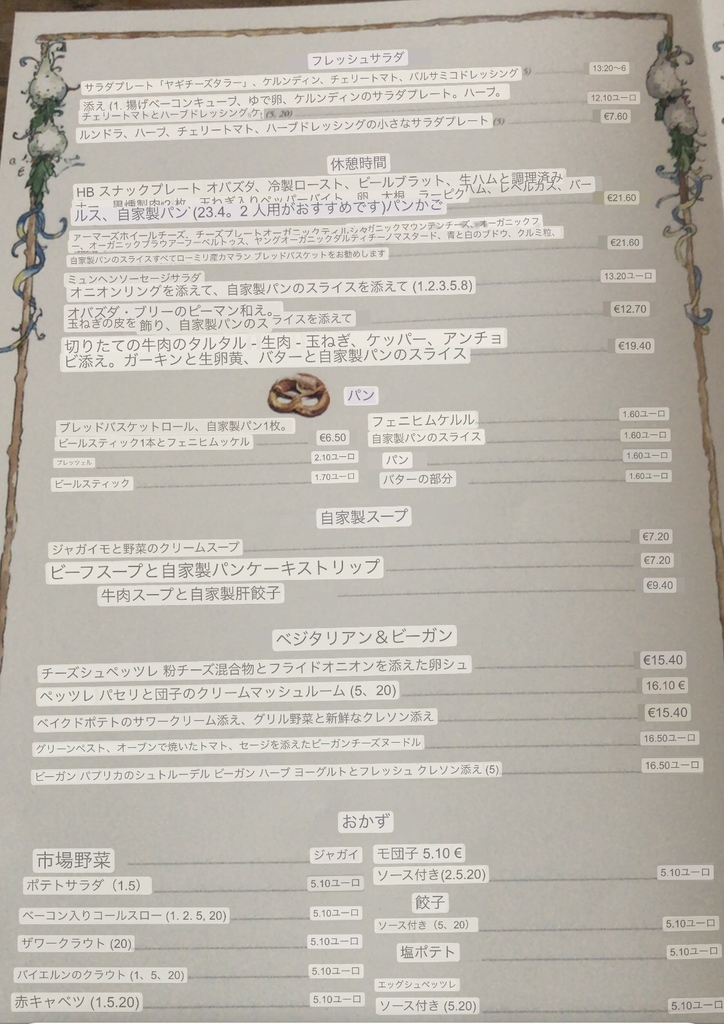 フレッシュサラダ
サラダプレート「ヤギチーズタラー」、ケルンディン、チェリートマト、バルサミコドレッシング 5)
13:20〜6
添え (1. 揚げベーコンキューブ、ゆで卵、ケルンディンのサラダプレート。ハーブ。
12.10ユーロ
チェリートマトとハーブドレッシング (5, 20)
ルンドラ、ハーブ、チェリートマト、ハーブドレッシングの小さなサラダプレート (5)
€7.60
休憩時間
HB スナックプレート オバズダ、冷製ロースト、ビールブラット、生ハムと調理済み
€21.60
ルス、自家製パン (23.4。2 人用がおすすめです)パンかご
アーマーズホイールチーズ、チーズプレートオーガニックティルシッターオーガニックマウンテンチーズ、オーガニックブ
ー、オーガニックブラウアーフーベルトゥス、ヤングオーガニックダルティチーノマスタード、青と白のブドウ、クルミ粒、
€21.60
自家製パンのスライスすべてローミリ産カマラン ブレッドバスケットをお勧めします
ミュンヘンソーセージサラダ
13.20ユーロ
オニオンリングを添えて、自家製パンのスライスを添えて (1.2.3.5.8)
オバズダ・ブリーのピーマン和え。
€12.70
玉ねぎの皮を飾り、自家製パンのスライスを添えて
切りたての牛肉のタルタル - 生肉 - 玉ねぎ、ケッパー、アンチョ
€19.40
ビ添え。ガーキンと生卵黄、バターと自家製パンのスライス
パン
ブレッドバスケットロール、自家製パン1枚。
ビールスティック1本とフェニヒムッケル
€6.50
プレッツェル
2.10ユーロ
ビールスティック
1.70ユーロ
フェニヒムケルル
1.60ユーロ
自家製パンのスライス
1.60ユーロ
パン
1.60ユーロ
バターの部分
1.60ユーロ
自家製スープ
ジャガイモと野菜のクリームスープ
€7.20
ビーフスープと自家製パンケーキストリップ
€7.20
牛肉スープと自家製肝餃子
€9.40
ベジタリアン＆ビーガン
チーズシュペッツレ 粉チーズ混合物とフライドオニオンを添えた卵シュ
€15.40
ペッツレ パセリと団子のクリームマッシュルーム (5、20)
16.10 €
ベイクドポテトのサワークリーム添え、グリル野菜と新鮮なクレソン添え
€15.40
グリーンペスト、オーブンで焼いたトマト、セージを添えたビーガンチーズヌードル
16.50ユーロ
ビーガン パプリカのシュトルーデル ビーガン ハーブ ヨーグルトとフレッシュ クレソン添え (5)
16.50ユーロ
おかず
市場野菜
ジャガイ
ポテトサラダ（1.5）
5.10ユーロ
ベーコン入りコールスロー (1. 2. 5, 20)
5.10ユーロ
ザワークラウト (20)
5.10ユーロ
バイエルンのクラウト (1、5、20)
5.10ユーロ
赤キャベツ (1.5.20)
5.10ユーロ
モ団子 5.10 €
ソース付き(2.5.20)
5.10ユーロ
餃子
ソース付き（5、20）
5.10ユーロ
塩ポテト
5.10ユーロ
エッグシュペッツレ
ソース付き (5.20)
5.10ユーロ